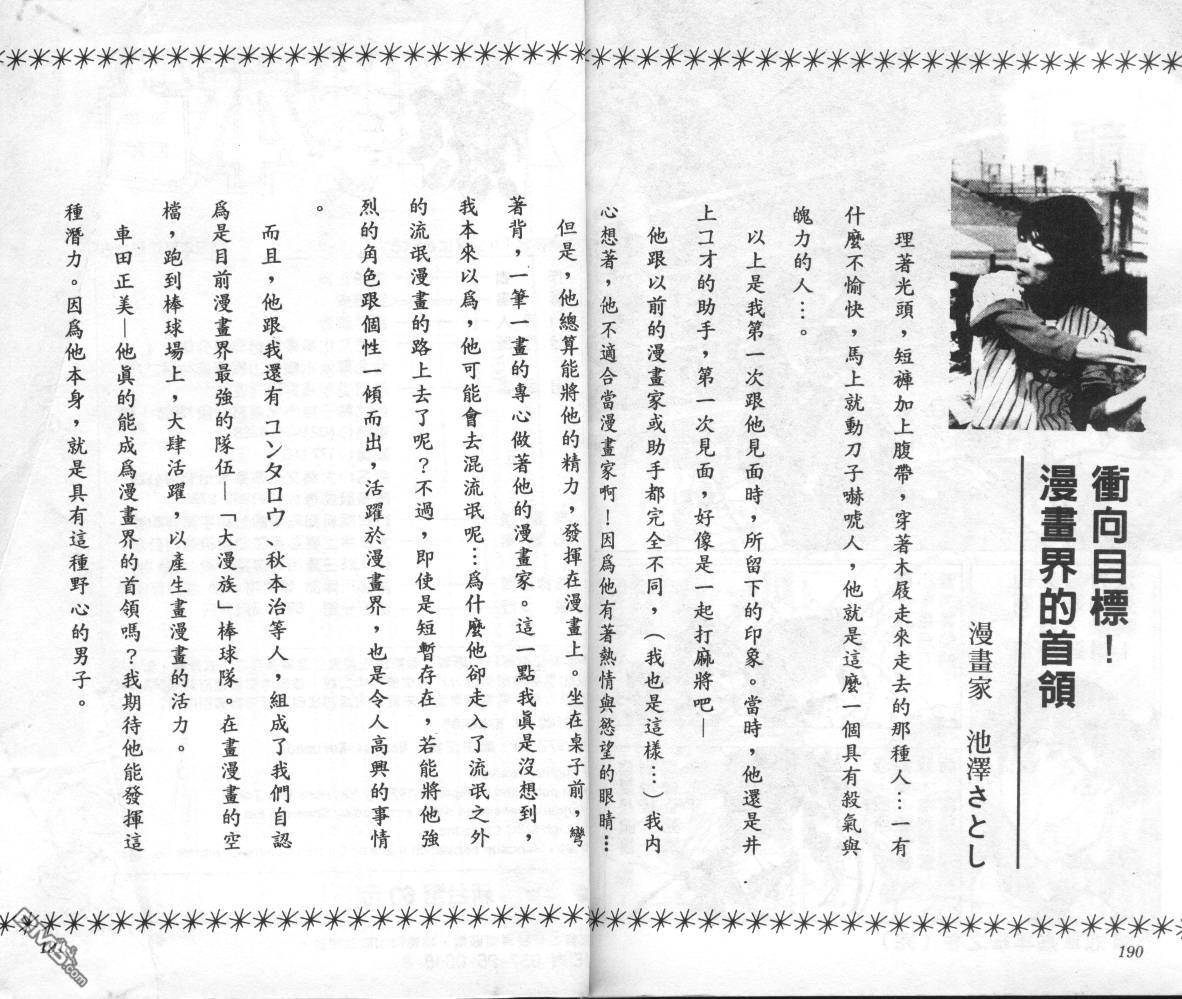 衝向目標！
漫畫界的首領
漫畫家　池澤さとし
理著光頭，短褲加上腹帶，穿著木屐走來走去的那種人…一有
什麼不愉快，馬上就動刀子嚇唬人，他就是這麼一個具有殺氣與
魄力的人…。
以上是我第一次跟他見面時，所留下的印象。當時，他還是井
上コオ的助手，第一次見面，好像是一起打麻將吧—
他跟以前的漫畫家或助手都完全不同，（我也是這樣…）我内
心想著，他不適合當漫畫家啊！因爲他有著熱情與慾望的眼睛…
但是，他總算能將他的精力，發揮在漫畫上。坐在桌子前，彎
著背，一筆一畫的專心做著他的漫畫家。這一點我眞是沒想到，
我本來以爲，他可能會去混流氓呢…爲什麼他卻走入了流氓之外
的流氓漫畫的路上去了呢？不過，即使是短暫存在，若能將他強
烈的角色跟個性一傾而出，活躍於漫畫界，也是令人高興的事情
。
而且，他跟我還有コンタロウ　秋本治等人，組成了我們自認
爲是目前漫畫界最強的隊伍　「大漫族」棒球隊。在畫漫畫的空
檔，跑到棒球場上，大肆活躍，以產生畫漫畫的活力。
車田正美—他眞的能成爲漫畫界的首領嗎？我期待他能發揮這
種潛力。因爲他本身，就是具有這種野心的男子。
190